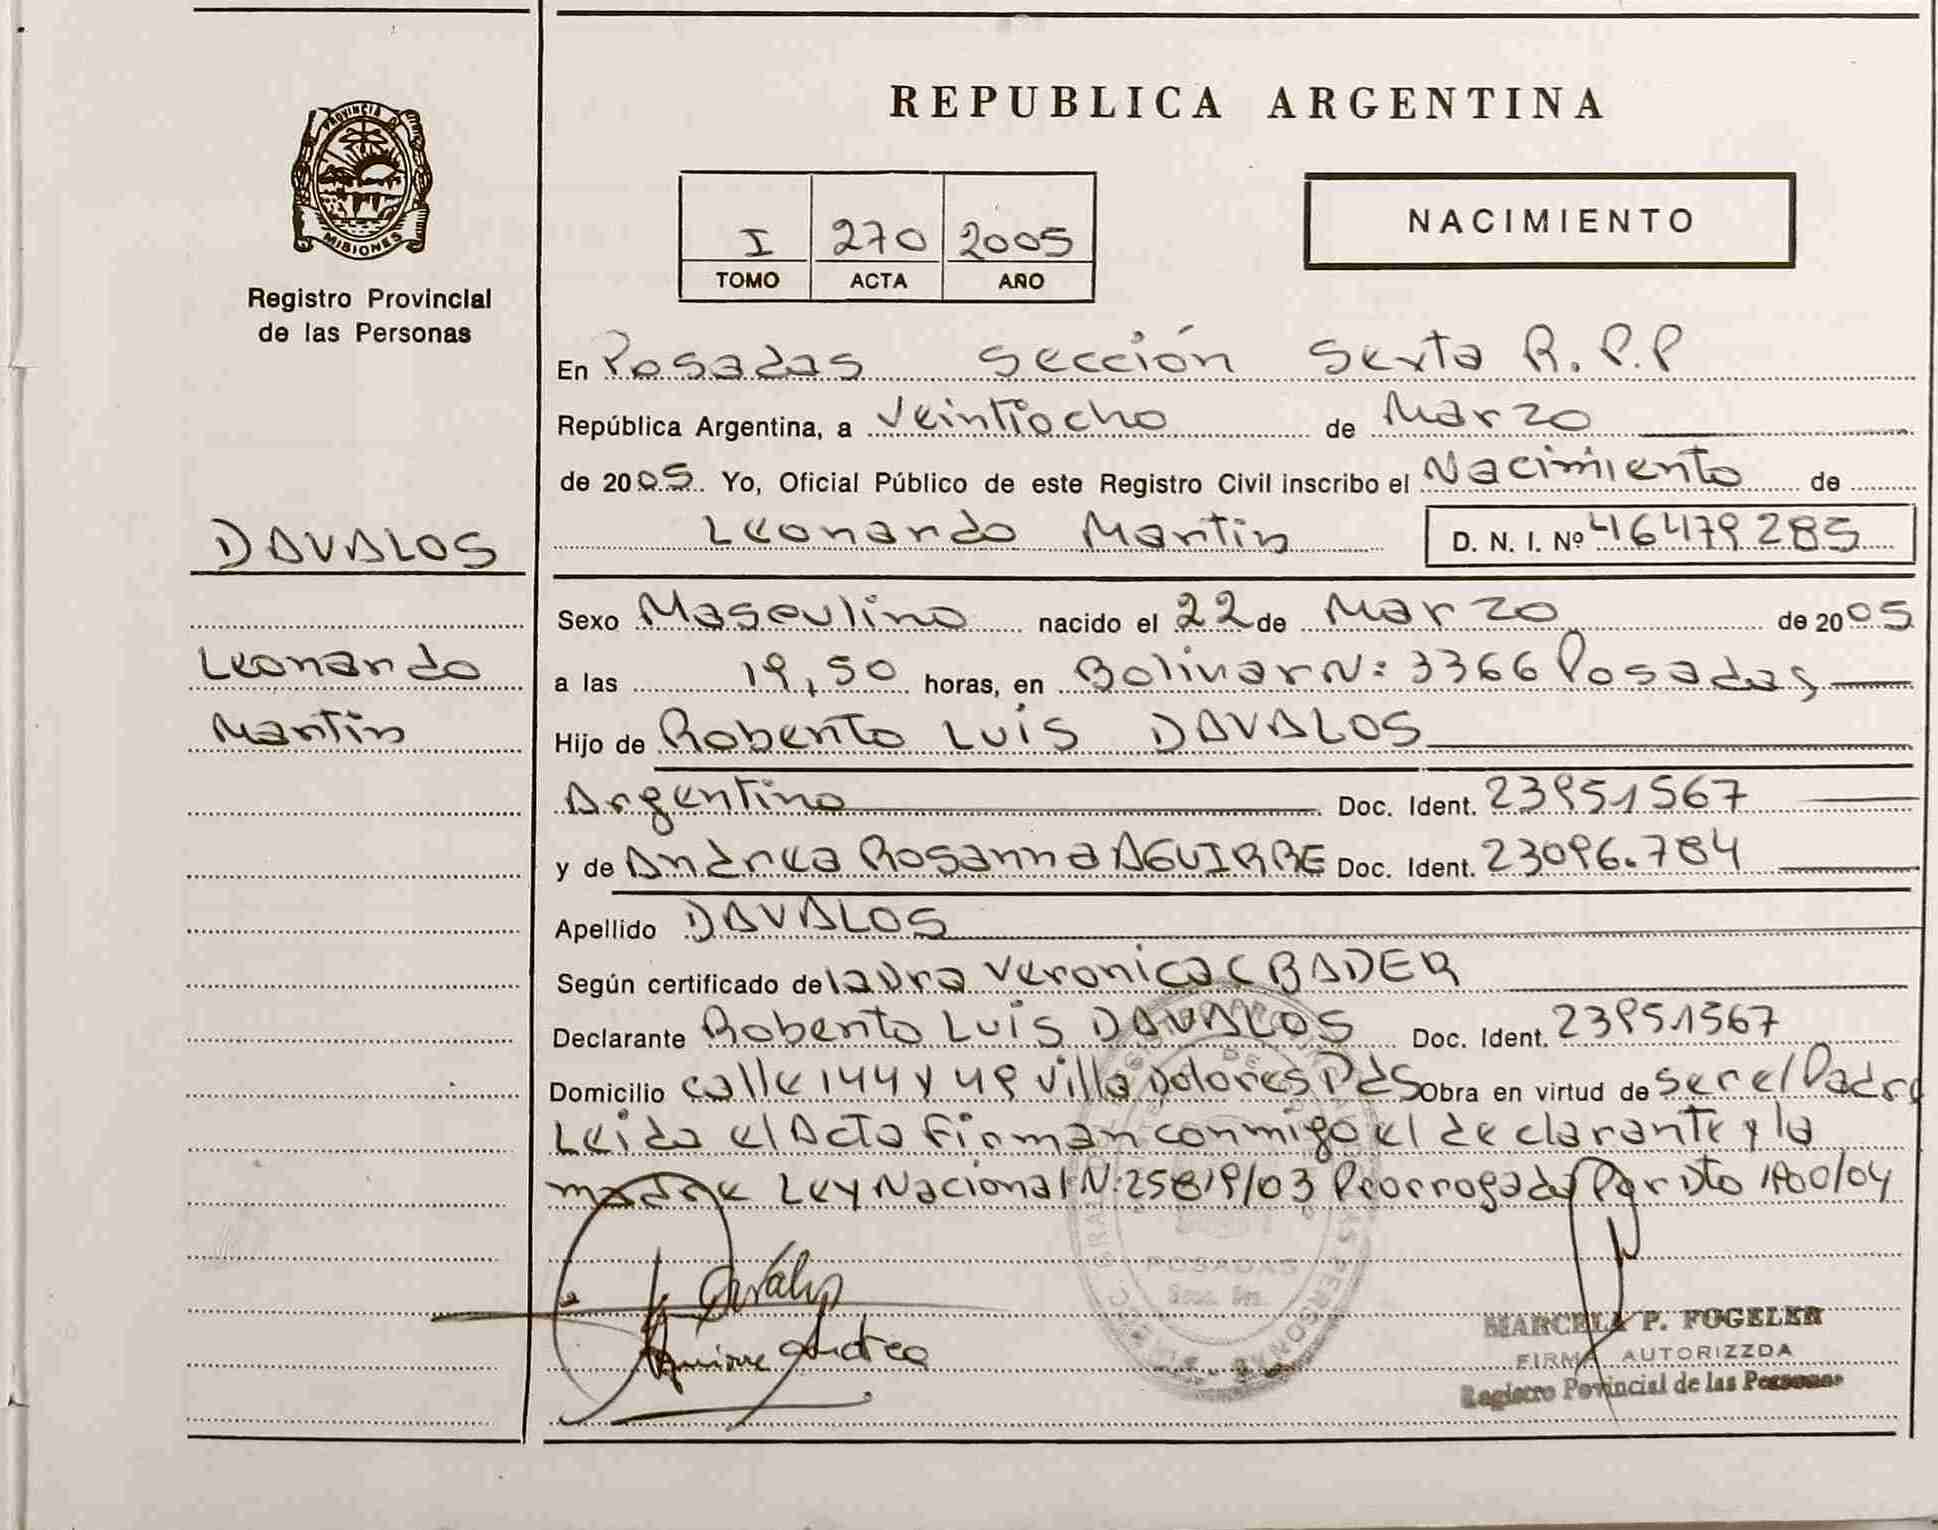 PROVINCIA DE
MISIONES
Registro Provincial
de las Personas
DAVALOS
Leonardo
Martin
REPUBLICA ARGENTINA
I 270 2005
TOMO ACTA AÑO
NACIMIENTO
En Posadas Sección Sexta R.P.P
República Argentina, a Veintiocho de Marzo
de 2005. Yo, Oficial Público de este Registro Civil inscribo el Nacimiento de
Leonardo Martin D. N. I. Nº 46479285
Sexo Masculino nacido el 22 de Marzo de 2005
a las 19,50 horas, en Bolivar N: 3366 Posadas
Hijo de Roberto Luis DAVALOS
Argentino Doc. Ident. 23951567
y de Andrea Rosanna AGUIRRE Doc. Ident. 23096.784
Apellido DAVALOS
Según certificado de laura Veronica C BADER
Declarante Roberto Luis DAVALOS Doc. Ident. 23951567
Domicilio calle 144 y 49 Villa Dolores Pdas Obra en virtud de ser el Padre
Leida el Acta Firman conmigo el declarante y la
madre Ley Nacional N:25819/03 Prorrogada Por Dto
POSADAS
Davalos
Aguirre Andrea
MARCELA P. FOGELER
FIRMA AUTORIZZDA
Registro Povincial de las Personas